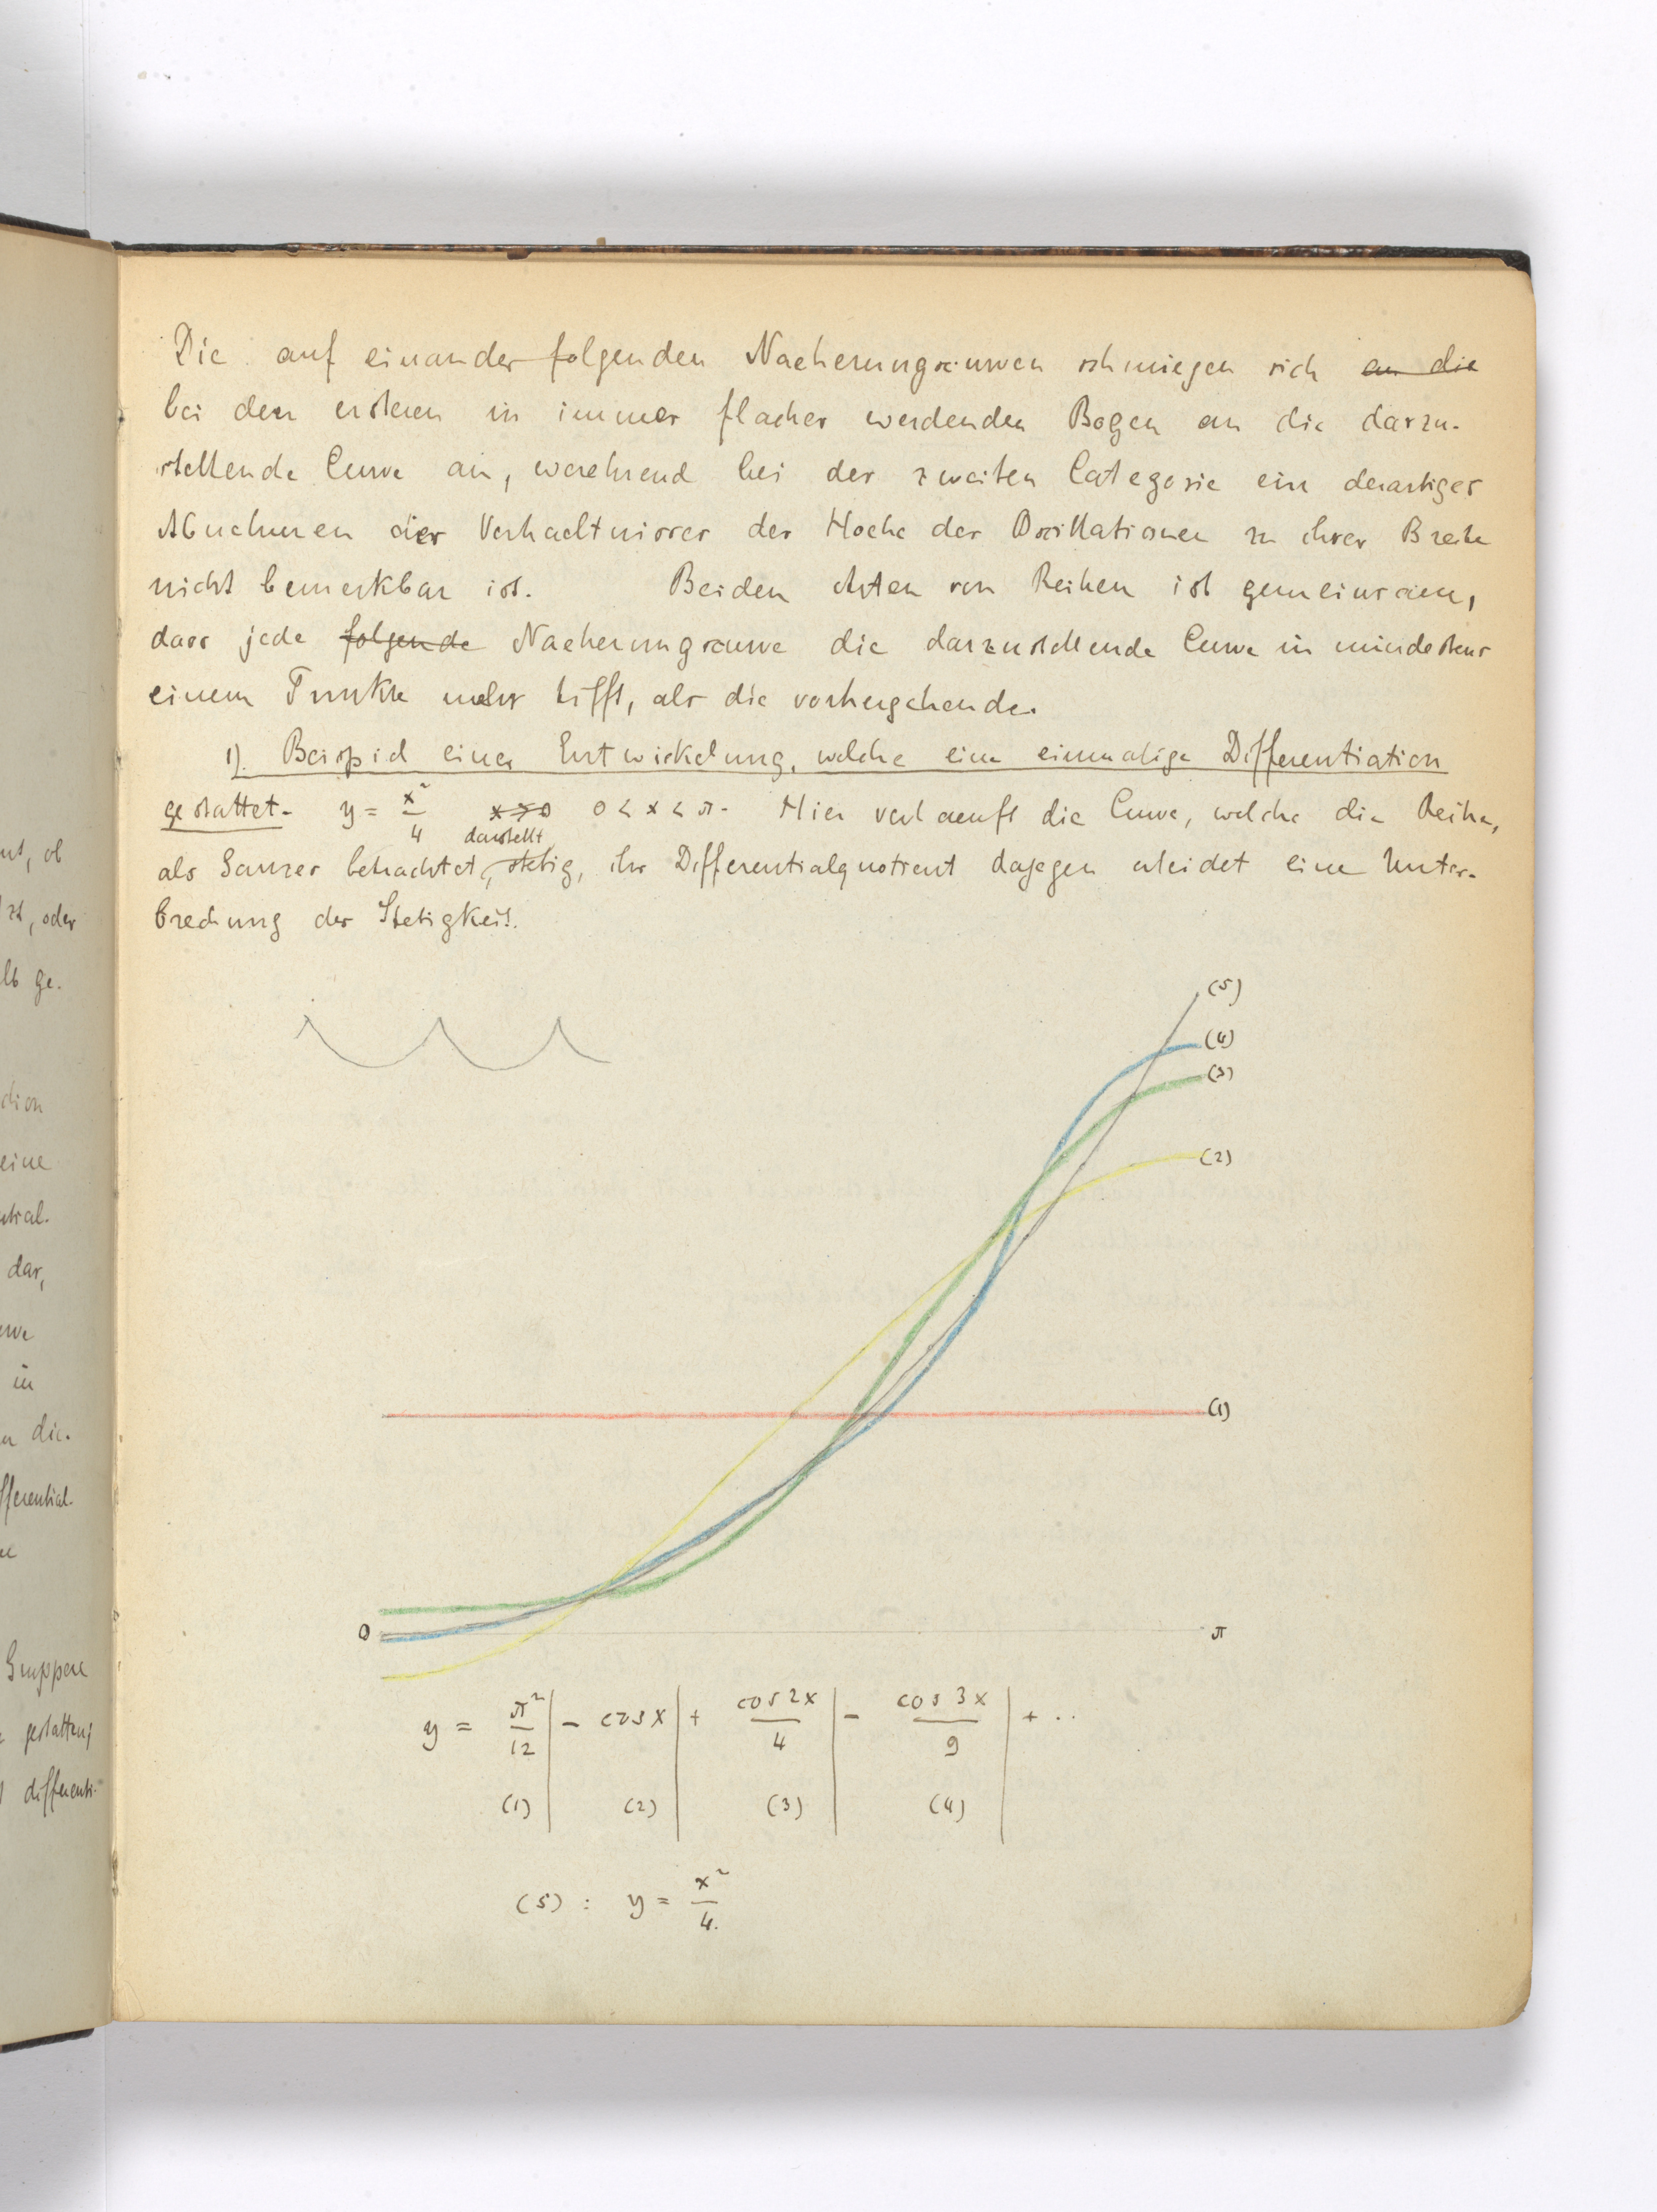 Die auf einander folgenden Naeherungscurven schmiegen sich an die
bei den ersteren in immer flacher werdenden Bogen an die darzu-
stellende Curve an, waehrend bei der zweiten Categorie ein derartiges
Abnehmen des Verhaeltnisses der Hoehe der Oscillationen zu ihrer Breite
nicht bemerkbar ist. Beiden Arten von Reihen ist gemeinsam,
dass jede folgende Naeherungscurve die darzustellende Curve in mindestens
einem Punkte mehr trifft, als die vorhergehende.
1). Beispiel einer Entwickelung, welche eine einmalige Differentiation
gestattet. y = x²/4 x>0 0 < x < π. Hier verlaeuft die Curve, welche die Reihe,
darstellt
als Ganzes betrachtet, stetig, ihr Differentialquotient dagegen erleidet eine Unter-
brechung der Stetigkeit.
(5)
(4)
(3)
(2)
(1)
0 π
y = π²/12 | - cos x | + cos 2x/4 | - cos 3x/9 | + ..
(1) | (2) | (3) | (4) |
(5) : y = x²/4.
nt, ob
zt, oder
lb ge-
ction
eine
ntral-
dar,
rve
in
n die.
fferential-
Gruppe
gestatten;
differenti-